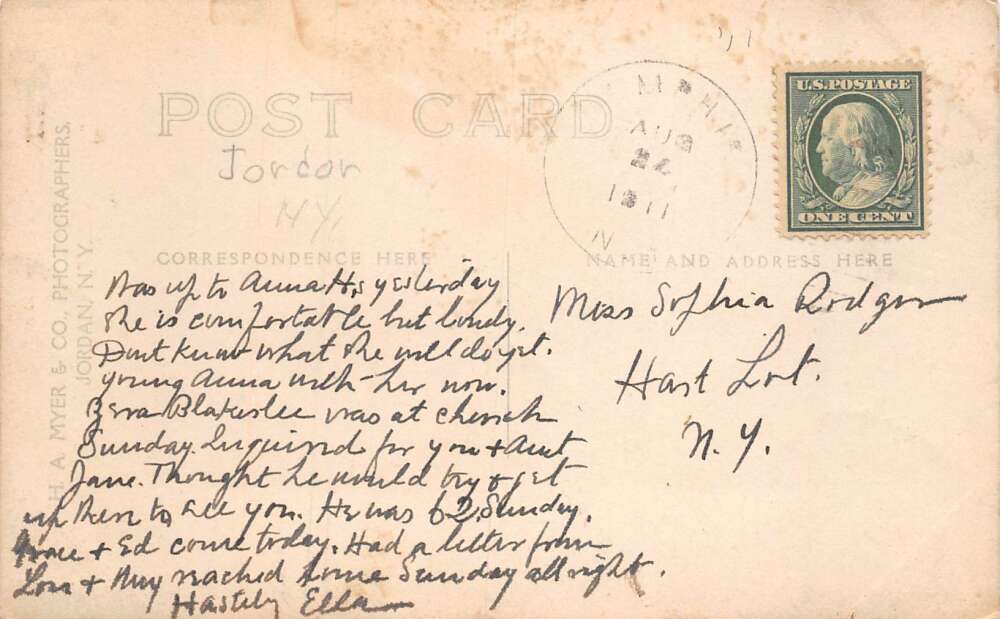 POST CARD
Jordan
N.Y.
CORRESPONDENCE HERE
NAME AND ADDRESS HERE
H. A. MYER & CO. PHOTOGRAPHERS.
JORDAN, N.Y.
AUG
24
1911
N
U.S. POSTAGE
ONE CENT
Was up to Anna H's yesterday
she is comfortable but lonely.
Dont know what she will do yet.
young Anna with her now.
Ezra Blakeslee was at church
Sunday. Inquired for you + Aunt
Jane. Thought he would try + get
up there to see you. He was 62 Sunday.
Grace + Ed come today. Had a letter from
Lou + they reached home Sunday all right.
Hastily Ella
Miss Sophia Rodgers
Hart Lot.
N.Y.